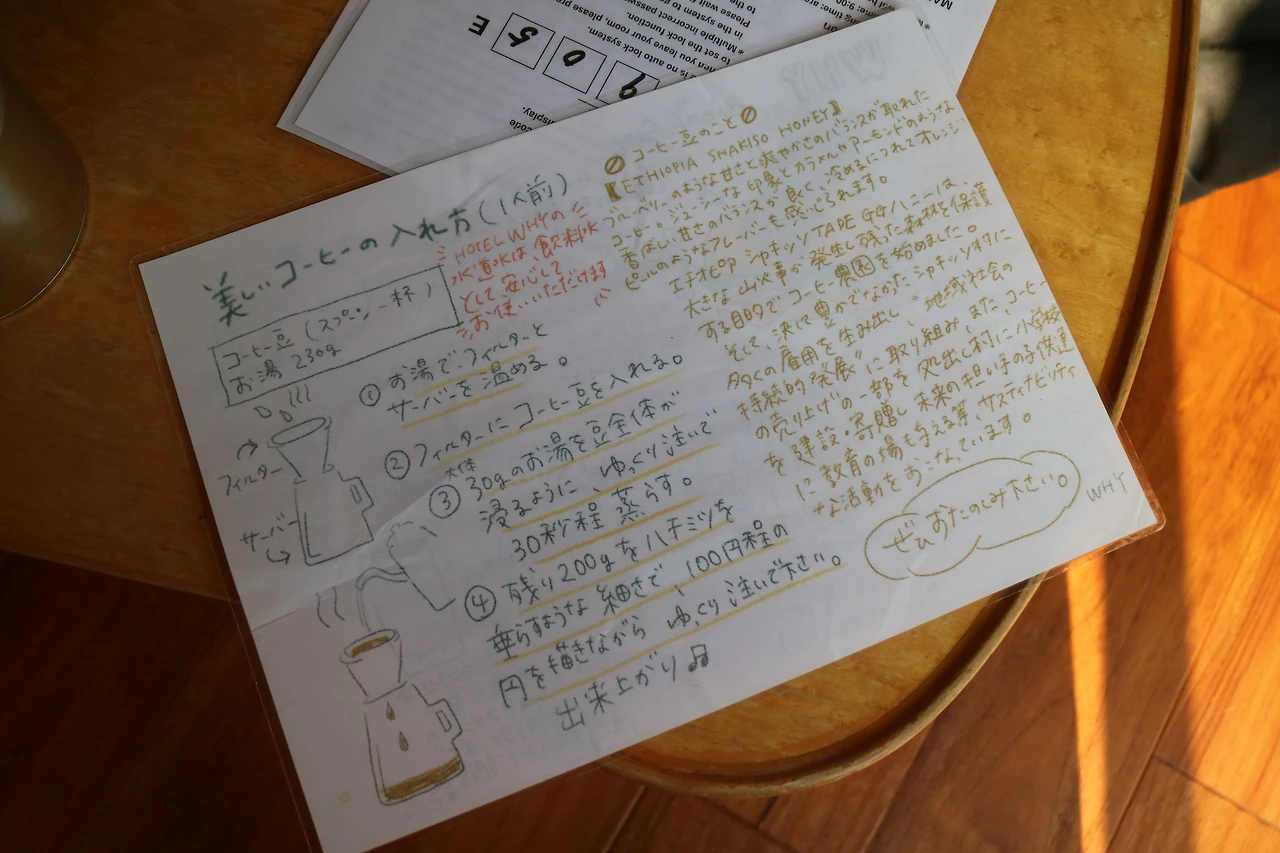 美しいコーヒーの入れ方（1人前）
HOTEL WHYの
水道水は、飲料水
として安心して
お使いいただけます
コーヒー豆（スプーン一杯）
お湯 230g
① お湯でフィルターと
サーバーを温める。
② フィルターにコーヒー豆を入れる。
③ 30gのお湯を豆全体が
大体
浸るように、ゆっくり注いで
30秒程蒸らす。
④ 残り200gをハチミツを
垂らすような細さで、100円程の
円を描きながら ゆっくり注いで下さい。
出来上がり♫
フィルター
サーバー
コーヒー豆のこと
【ETHIOPIA SHAKISO HONEY】
ブルーベリーのような甘さと爽やかさのバランスが取れた
コーヒー。ジューシーな印象とカラメルやアーモンドのような
香ばしい甘さのバランスが良く、冷めるにつれてオレンジ
ピールのようなフレーバーも感じられます。
エチオピア シャキッソTADE GGハニーは、
大きな山火事が発生し残った森林を保護
する目的でコーヒー農園を始めました。
そして、決して豊かでなかったシャキッソ
多くの雇用を生み出し、"地域社会の
持続的発展"に取り組み、また、コーヒー
の売り上げの一部を捻出し村に小学校
を建設・寄贈し未来の担い手の子供達
に教育の場も与える等、サスティナビリティ
な活動をおこなっています。
ぜひおたのしみ下さい。
WHY
code
display.
905E
is no auto lock system.
hen you leave your room, please
to set the lock function.
*Multiple incorrect
in the system to
Please wait
to the